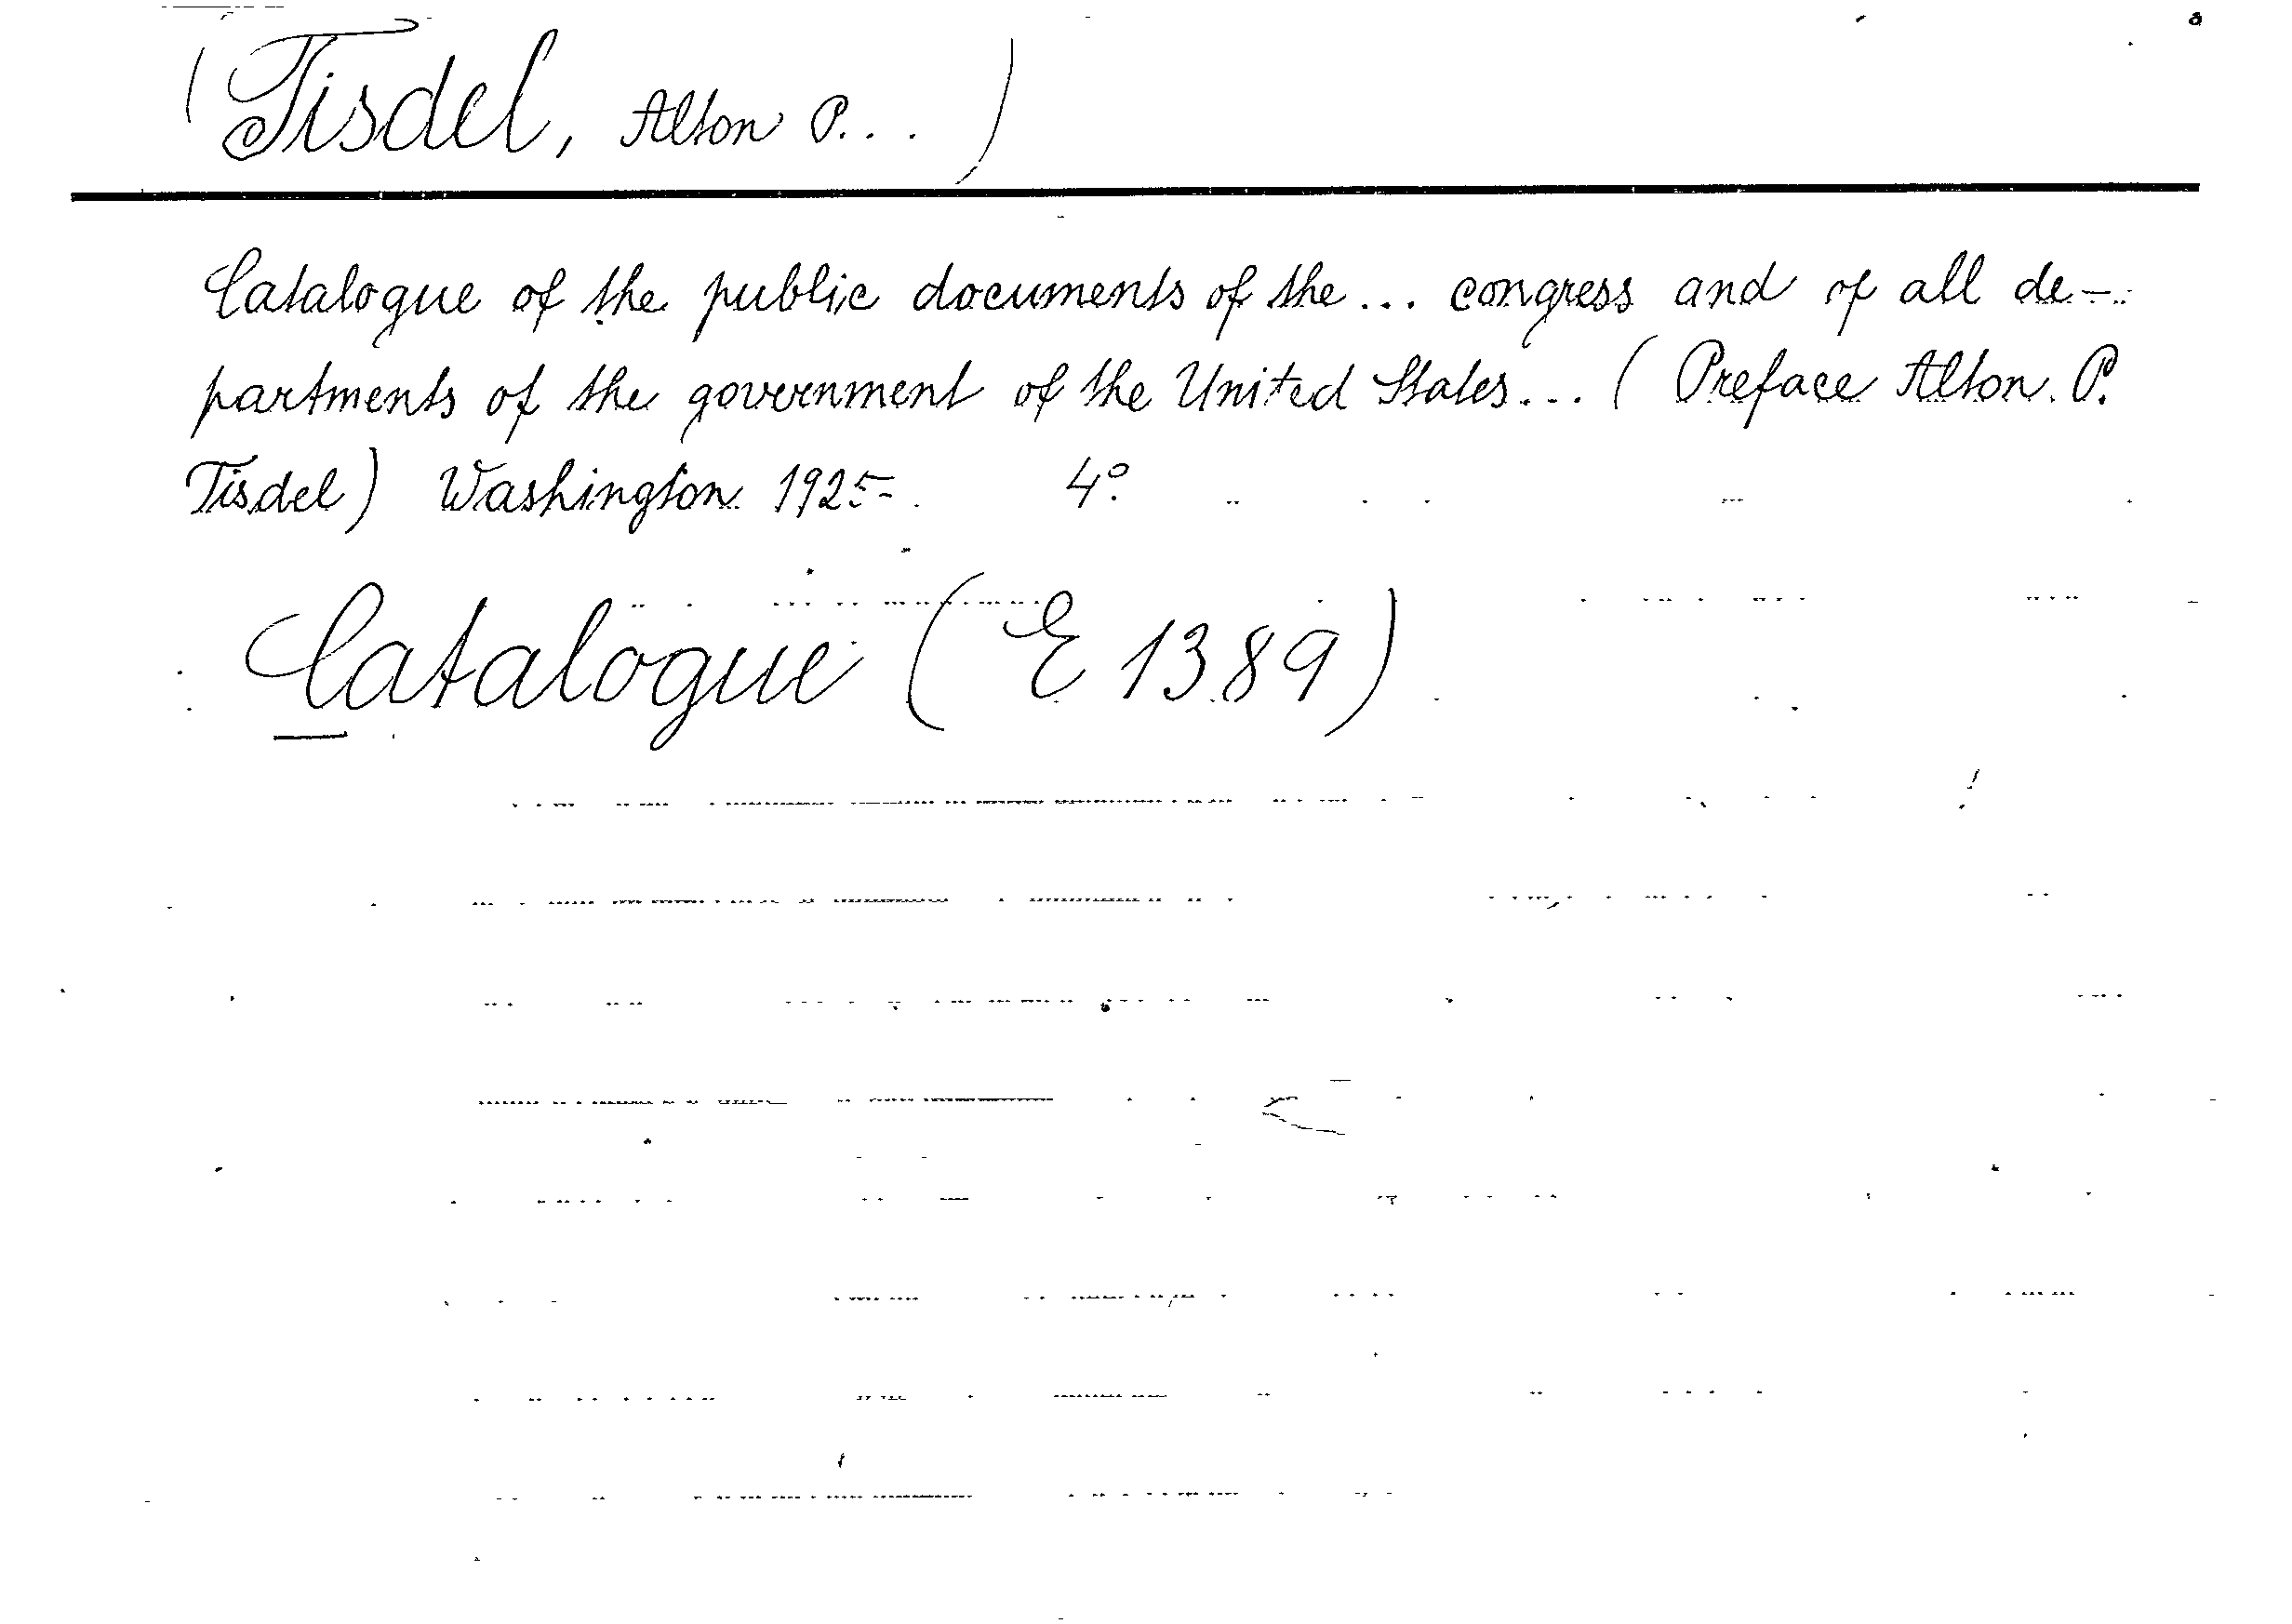 (Tisdel, Alton P...)
Catalogue of the public documents of the ... congress and of all de-
partments of the government of the United States... (Preface Alton P.
Tisdel) Washington 1925- 4°
Catalogue (E 1389)